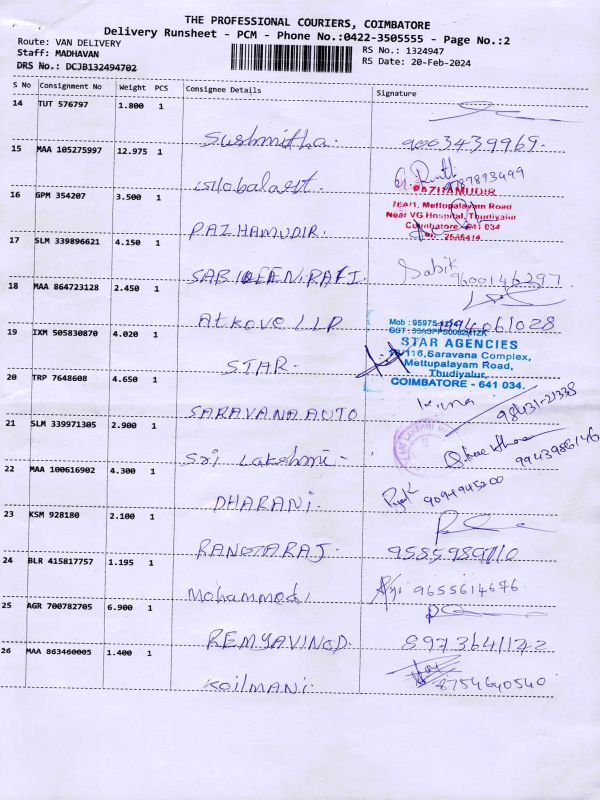 THE PROFESSIONAL COURIERS, COIMBATORE
Delivery Runsheet - PCM - Phone No.:0422-3505555 - Page No.:2
Route: VAN DELIVERY
RS No.: 1324947
Staff: MADHAVAN
RS Date: 20-Feb-2024
DRS No.: DCJB132494702
S No Consignment No Weight PCS Consignee Details Signature
14 TUT 576797 1.800 1
Sushmitha. 9003439969.
15 MAA 105275997 12.975 1
9787893499
16 GPM 354207 3.500 1
PAZHAMUDIR
Mettupalayam Road
Near VG Hospital, Thudiyalur
Coimbatore 641 034
PAZHAMUDIR.
17 SLM 339896621 4.150 1
Sabik
9600146297
18 MAA 864723128 2.450 1
Atkove LLP 9994061028
19 IXM 505830870 4.020 1
STAR AGENCIES
Saravana Complex,
Mettupalayam Road,
Thudiyalur,
COIMBATORE - 641 034.
STAR.
20 TRP 7648608 4.650 1
98431-21338
SARAVANA AUTO
21 SLM 339971305 2.900 1
9943986146
Sri Lakshmi-
22 MAA 100616902 4.300 1
DHARANI.
23 KSM 928180 2.100 1
RANGARAJ.
24 BLR 415817757 1.195 1
Mohammed. 9655614676
25 AGR 700782705 6.900 1
REMYAVINOD. 8973641172
26 MAA 863460005 1.400 1
KOILMANI. 8754640540